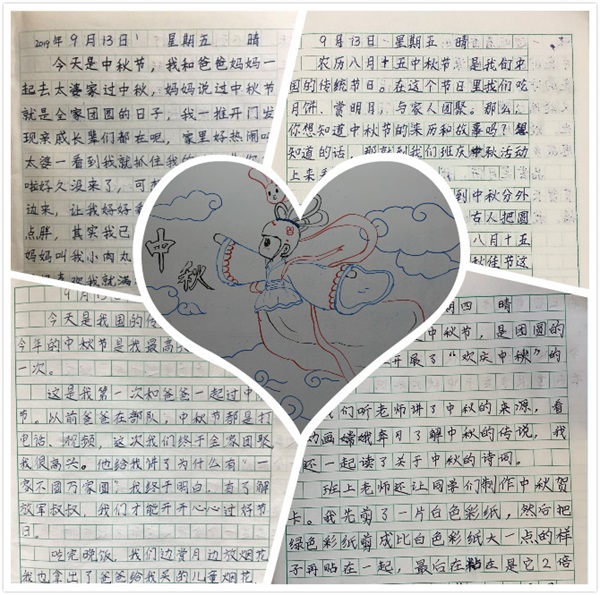 2019年9月13日 星期五 晴
今天是中秋节，我和爸爸妈妈一
起去太婆家过中秋，妈妈说过中秋节
就是全家团圆的日子，我一推开门发
现亲戚长辈们都在呢，家里好热闹
太婆一看到我就抓住我的
啦好久没来了，可
边来，让我好好
点胖，其实我已
妈妈叫我小肉丸
我就满
9月13日 星期五 晴
农历八月十五中秋节，是我们中
国的传统节日。在这个节日里我们吃
月饼、赏明月，与家人团聚。那么，
你想知道中秋节的来历和故事吗？想
知道的话，那就到我们班庆中秋活动
上来
到中秋分外
古人把圆
八月十五
秋佳节这
中秋
9月13日
今天是我国的传
今年的中秋节是我最高兴
一次。
这是我第一次和爸爸一起过中
节。以前爸爸在部队，中秋节都是打
电话、视频，这次我们终于全家团聚
我很高兴。他给我讲了为什么有“一
家不圆万家圆”我终于明白，有了解
放军叔叔，我们才能开开心心过好节
日。
吃完晚饭，我们边赏月边放烟花
我也拿出了爸爸给我买的儿童烟花，
期四 晴
中秋节，是团圆的
开展了“欢庆中秋”的
我们听老师讲了中秋的来源，看
动画嫦娥奔月了解中秋的传说，我
还一起读了关于中秋的诗词。
班上老师还让同学们制作中秋贺
卡。我先剪了一片白色彩纸，然后把
绿色彩纸剪成比白色彩纸大一点的样
子再贴在一起，最后在粘在是它2倍